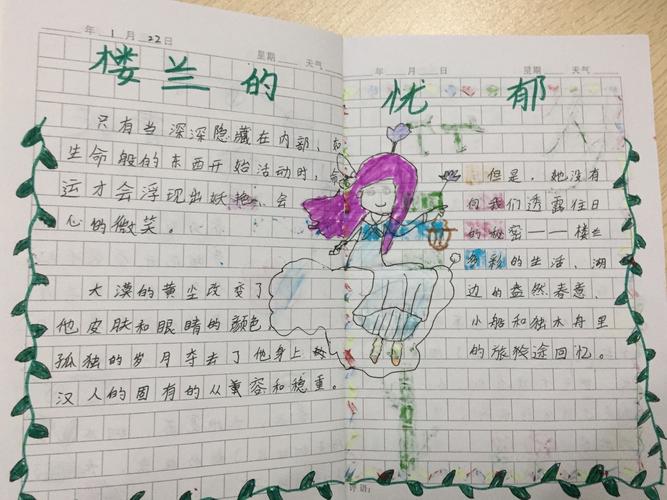 年 1 月 22 日 星期 天气
年 月 日 星期 天气
楼兰的忧郁
只有当深深隐藏在内部、如
生命般的东西开始活动时,命
运才会浮现出妖艳、会
心的微笑。
大漠的黄尘改变了
他皮肤和眼睛的颜色
孤独的岁月夺去了他身上
汉人的固有的从容和稳重。
但是,她没有
向我们透露往日
的秘密——楼兰
多彩的生活、湖
边的盎然春意、
小船和独木舟里
的旅途回忆。
评语: